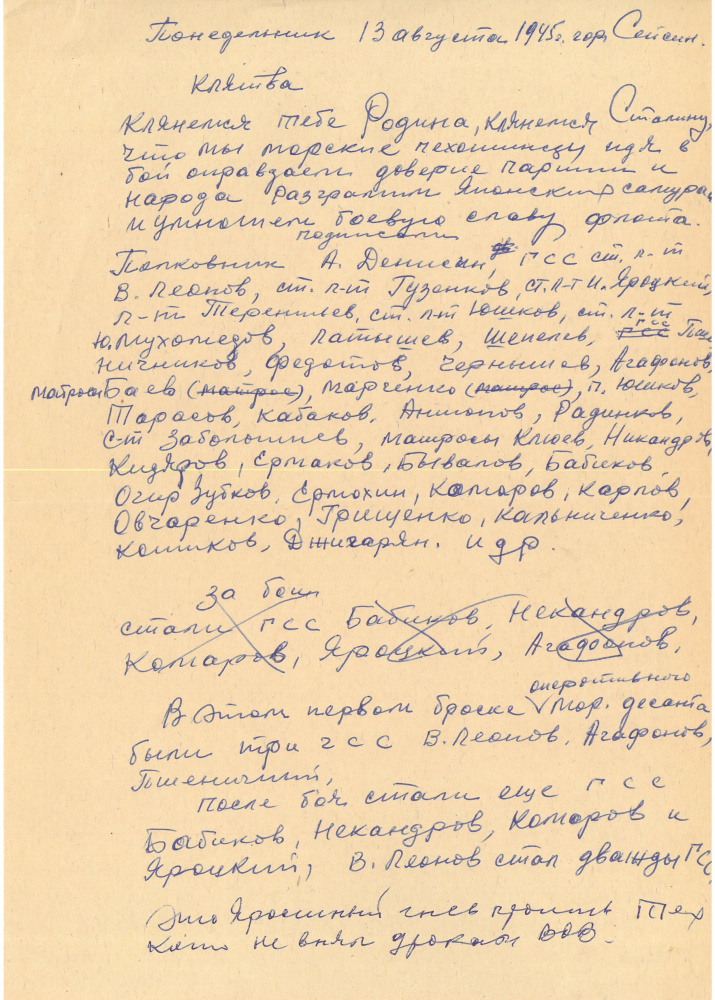 Понедельник 13 августа 1945г. гор. Сейсин.
Клятва
Клянемся тебе Родина, клянемся Сталину,
что мы морские пехотинцы идя в
бой оправдаем доверие партии и
народа разгромим Японских самураи
и умножем боевую славу флота.
подписали
Полковник А. Денисин, ГСС ст. л-т
В. Леонов, ст. л-т Гузенков, ст. л-т И. Яроцкий,
л-т Терентьев, ст. л-т Юшков, ст. л-т
Ю. Мухомедов, Латышев, Шепелев, ГСС ГСС Пше
ничников, Федотов, Чернышев, Агафонов,
матросы Баев (матрос), Марченко (матрос), П. Юшков,
Тарасов, Кабаков, Антопов, Радинков,
с-т Заболотнев, матросы Клюев, Никандров,
Кидяров, Ермаков, Бывалов, Бабиков,
Огир Зубков, Ермохин, Комаров, Карпов,
Овчаренко, Грищенко, Кальниченко,
Котиков, Джигарян. и др.
За бои
стали ГСС Бабиков, Некандров,
Комаров, Яроцкий, Агафонов,
оперативного
В этом первом броске мор. десанта
были три ГСС В. Леонов, Агафонов,
Пшеничный,
после боя стали еще ГСС
Быбиков, Некандров, Комаров и
Яроцкий, В. Леонов стал дважды ГСС
Это Яростный гнев против Тех
кто не внял урокам ВОВ.